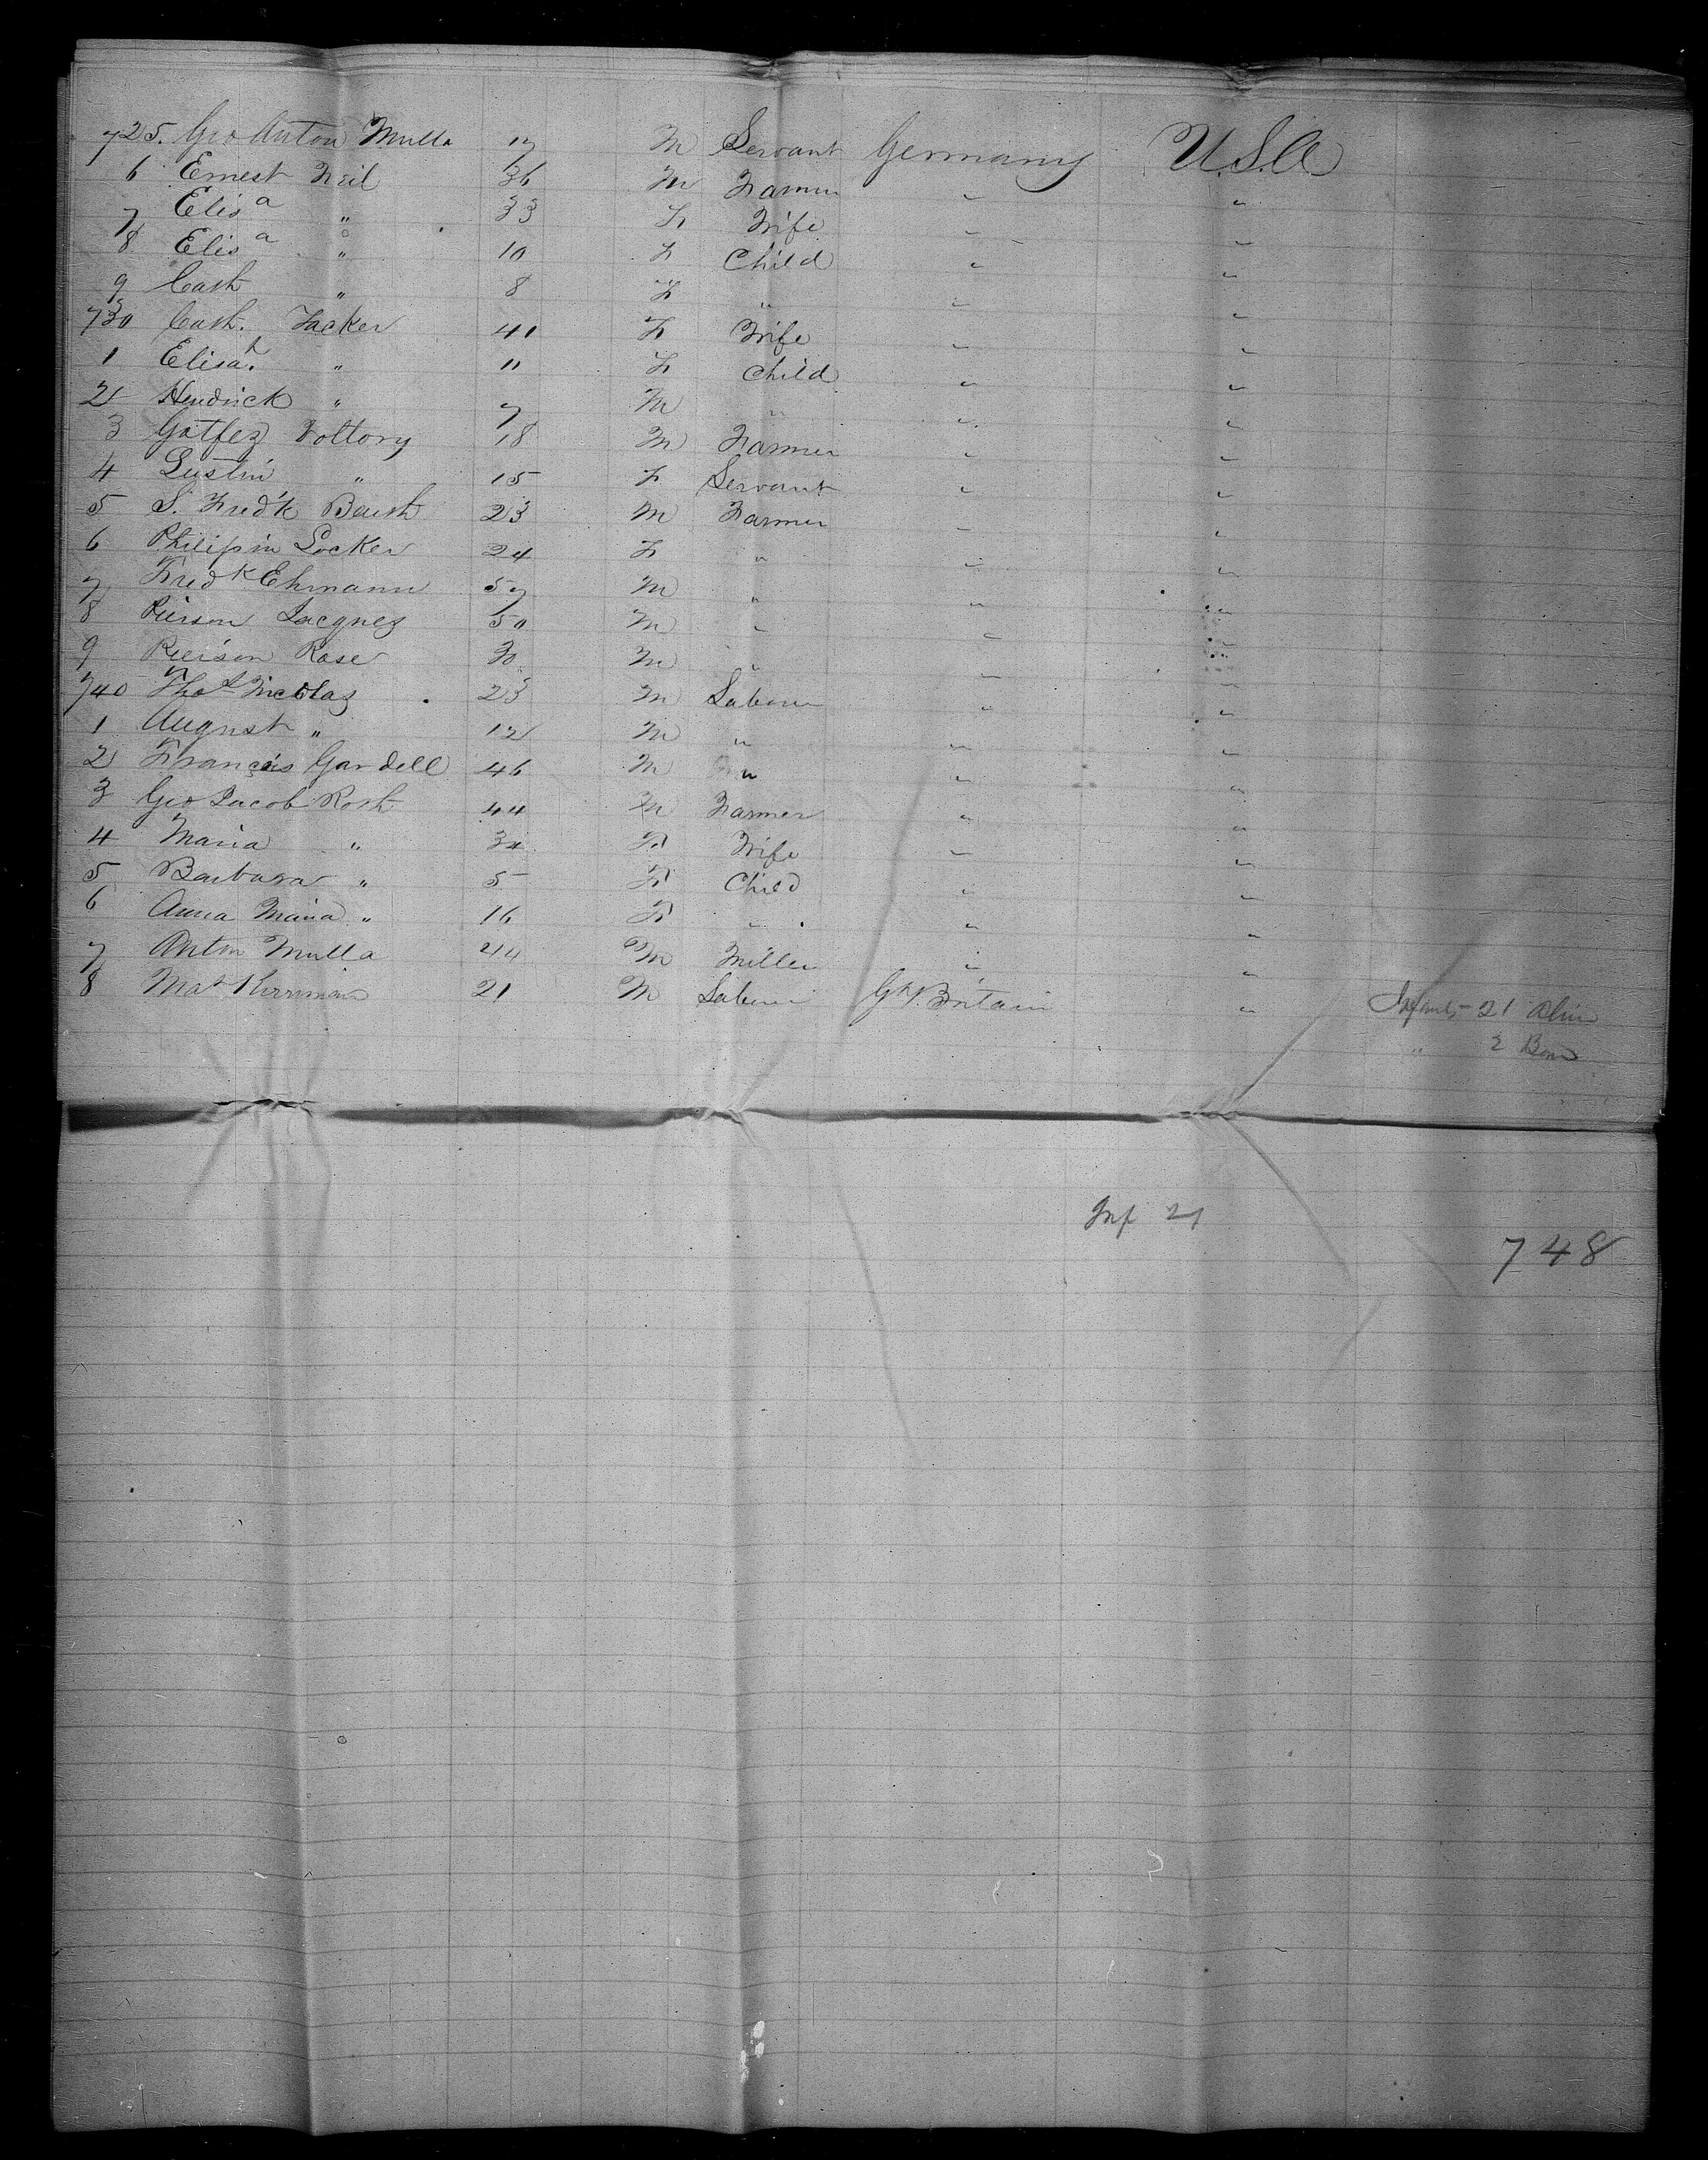 725. Geo Anton Mulla 17 M Servant Germany U.S.A
6 Ernest Neil 36 M Farmer " "
7 Elisa " 33 F Wife " "
8 Elisa " 10 F Child " "
9 Cath " 8 F " " "
730 Cath. Facker 41 F Wife " "
1 Elisah. " 11 F Child " "
2 Hendrick " 7 M " " "
3 Gotfez Voltory 18 M Farmer " "
4 " 15 F Servant " "
5 S. Fredk Baush 23 M Farmer " "
6 Philipin Locker 24 F " " "
7 Fredk Ehmann 57 M " " "
8 Pierson Jacques 50 M " " "
9 Pierson Rose 30 M " " "
740 Thos Nicolas 23 M Labour " "
1 August " 12 M " " "
2 François Gardell 46 M " " "
3 Geo Jacob Rosh 44 M Farmer " "
4 Maria " 34 F Wife " "
5 Barbara " 5 F Child " "
6 Anna Maria " 16 F " " "
7 Anton Mulla 44 M Miller " "
8 Mat 21 M Labour Gt. Britain " Infants - 21 Alive
" 2 Born
Inf 21
748